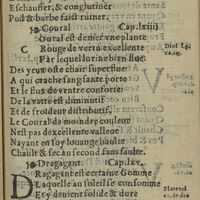 Eschauffer, & conglutiner
Poil & barbe faict ruiner.
Coural Cap. lxiiij
Coural est de mer vne plante
Rouge de vertu excellente
Par lequel on ne bien flue
Des yeux oste chair superflue:
A qui crache sang faite porte
Et le flux de ventre conforte:
De la ratte est diminutif
Et de froideur distributif,
Le Coural de moindre couleur
N'est pas d'excellente valleur
Nayant en soy louange haulte
Chault & sec au second sans faulte.
Dragagant. Cap. lxv.
DRagagant est certaine Gomme
Laquelle au soleil se consomme
Et y deuient solide & dure
Diosc. l. 5.
Plateari